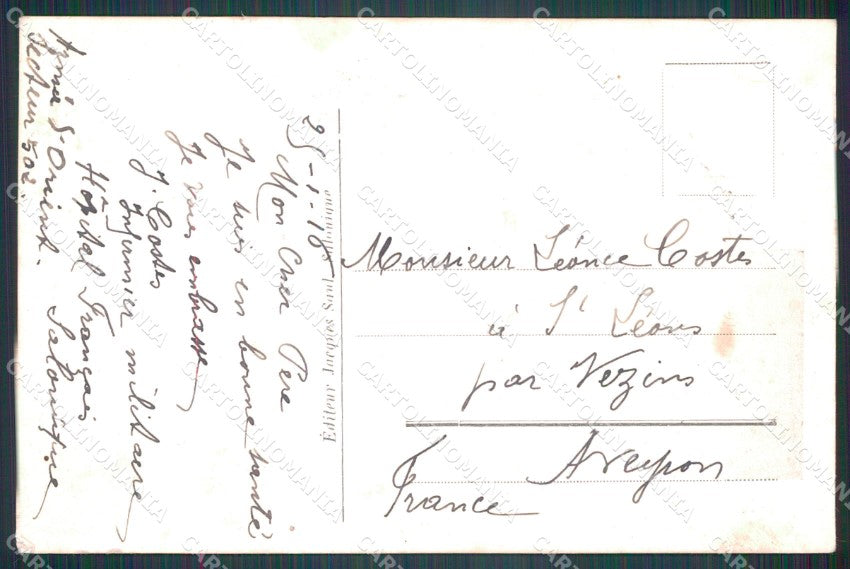 25-1-18
Mon Cher Père
Je suis en bonne santé
Je vous embrasse
J. Costes
Infirmier militaire
Hôpital Français
Salonique
Armée d'Orient.
Secteur 502.
Editeur Jacques Saul, Salonique
Monsieur Léonce Costes
à St Léons
par Vezins
Aveyron
France
CARTOLINOMANIA